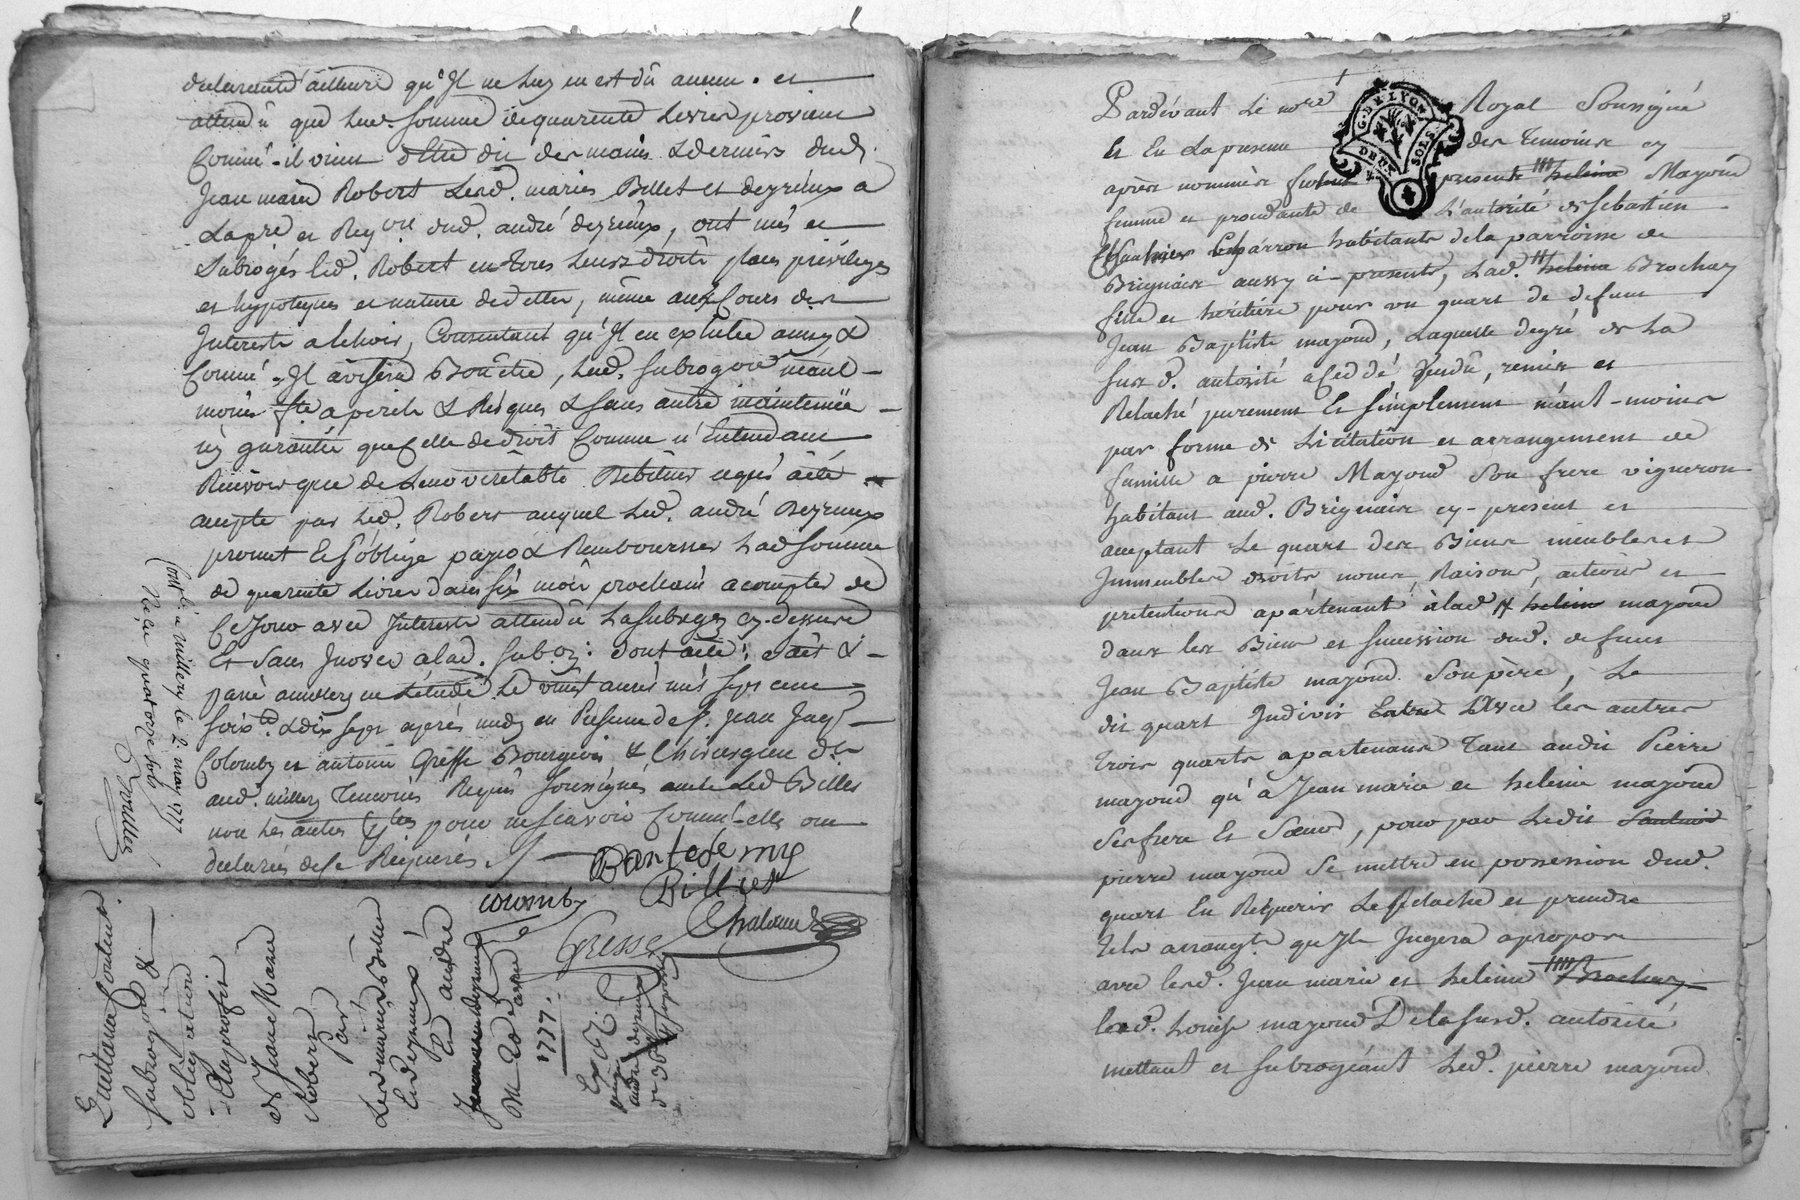 declarent d'ailleurs qu'Il ne luy en est dû aucun. et
attendu que lad. somme de quarente Livres provient
comme il vient d'Etre dit des mains & deniers dud.
Jean marie Robert Lesd. mariés Billet et deyrieux a
La pre et Reqon dud. andré deyrieux, ont mis et
Subrogés led. Robert en tous Leurs droits places privileges
et hypoteques et nature de dettes, même aux Cours des
Interests a Echoir, Consentant qu'Il en exhibe ainsy &
Comme Il avisera Bon être, lad. subrogon néant
moins fte a perils & Risques & sans autre maintenüe
ny garantie que Celle de droit Comme n'Entendant
Recevoir que de Leur véritable Debiteur ce qui a été
accepté par Led. Robert auquel Led. andré Deyrieux
promet Et s'oblige payer & Rembourser Lad somme
de quarente Livres dans six mois prochain a compter de
Ce Jour avec Interests attendu La subrogon cy-dessus
Et Sans Innover a lad. subon: dont acte: fait &
passé a millery en L'étude Le vingt avril mil sept cent
soixte & dix sept après midy en Présence de sr. Jean Jacq
Colomby et antoine Gresse Bourgeois & Chirurgien dt.
aud. millery Temoins Requis soussignés avec Led Billet
non Les autres pties pour ne scavoir Comme elles ont
declarées de ce Requises ./.
Bartelemy
Billiet
colomby
Gresse
Chaland
Conlé a millery le 2. may 1777
Reçu quatorze sols
Quittance Contenant
subrogon &
obligation
Au profit
de Jean Marie
Robert
Par
Les mariés Billet
Et deyrieux
Et andré
Du 20 avril
1777.
Expé
Pardevant Le nore Royal Soussigné
G. DE LYON
DEUX SOLS
Et En La presence des Temoins cy
après nommés fut presente helene Mayoud
femme et procedante de L'autorité de Sebastien
habitants de la parroisse de
Brignais aussy ci-presents, Lad. helene Brochay
fille et héritière pour un quart de defunt
Jean Baptiste mayoud, Laquelle degré de La
susd. autorité a Cedé Vendû, remis et
Relaché purement Et simplement néant-moins
par forme de Licitation et arrangement de
famille a pierre Mayoud son frere vigneron
habitant aud. Brignais cy-present et
acceptant Le quart des Biens meubles et
Immeubles droits noms, Raisons, actions et
pretentions apartenant à lad helene mayoud
dans les Biens et succession dud. defunt
Jean Baptiste mayoud Son père, Le
dit quart Indivis Entre Avec les autres
trois quarts apartenants tant audit Pierre
mayoud qu'à Jean marie et helene mayoud
Ses frere Et Sœur, pour par Ledit
pierre mayoud Se mettre en possession dud.
quart En Requerir Le Relaché et prendre
tels arrangts qu'Il Jugera apropos
avec lesd. Jean marie et helene Brochay
lad. Louise mayoud De la susd. autorité
mettant et subrogeant Led. pierre mayoud